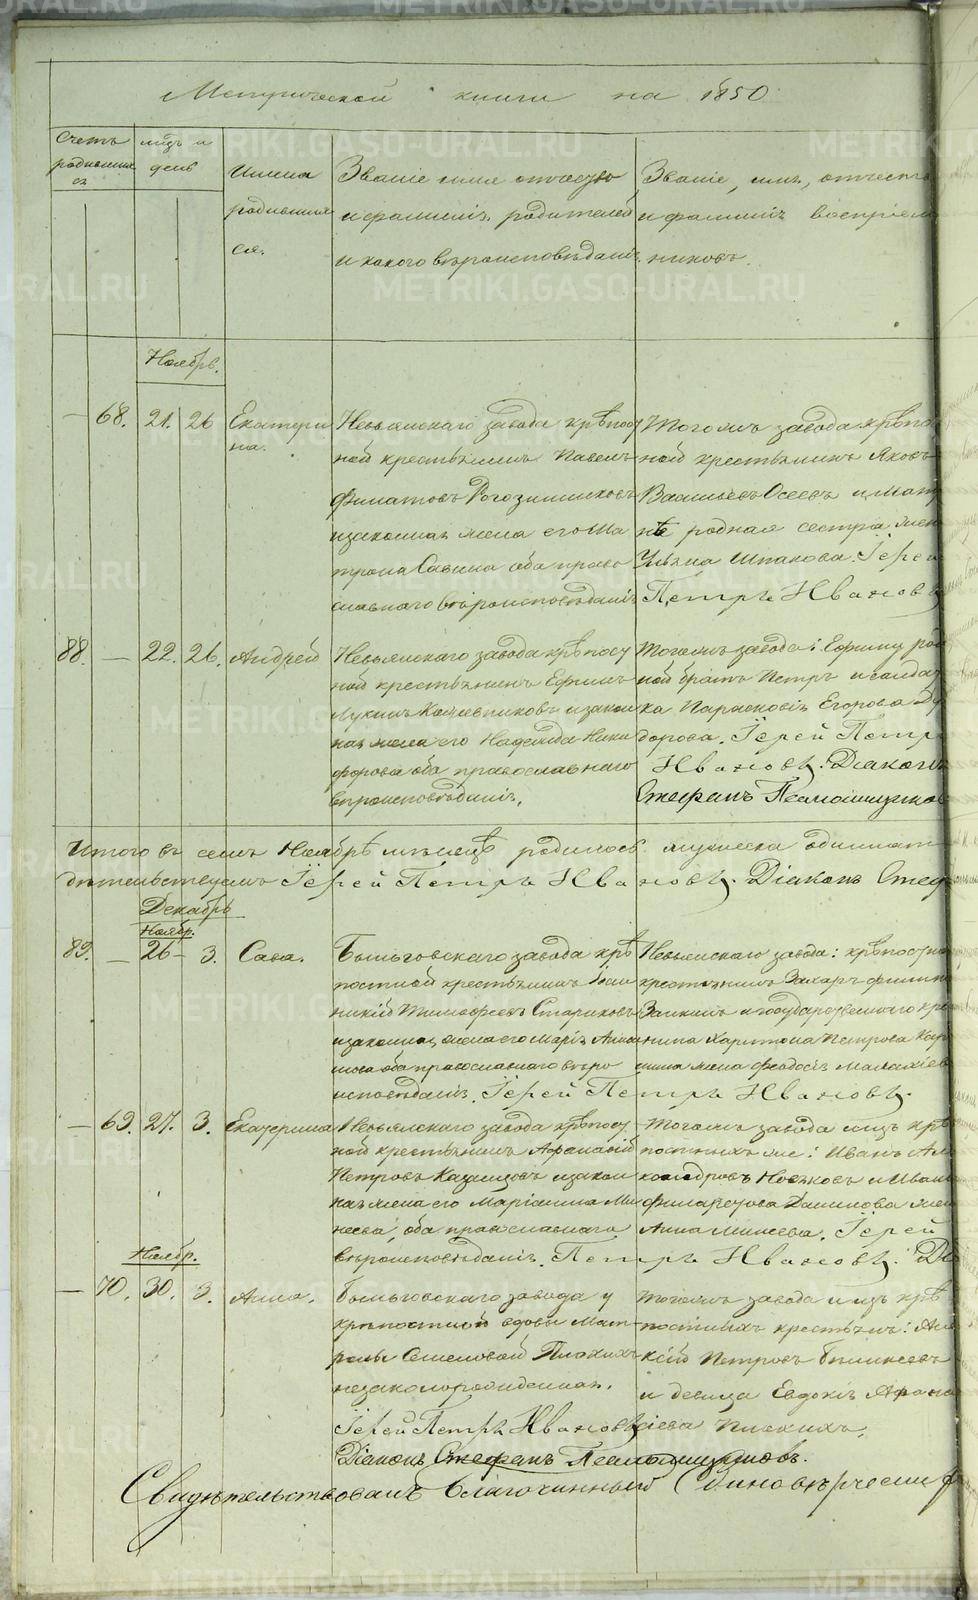 METRIKI.GASO-URAL.RU
Метрической книги на 1850
Счетъ родившихся
мцъ и день
Имена родившихся.
Званіе имя отчество и фамилія родителей и какого вѣроисповѣданія
Званіе, имя, отчество и фамилія воспріем
никовъ.
Ноябрь.
— 68. 21. 26 Екатерина.
Невьянскаго завода крѣпост
ной крестьянинъ Павелъ
Филатовъ Рогозинниковъ
и законная жена его Ма
трона Савина оба право
славнаго вѣроисповѣданія
Тогожъ завода крѣпо
ной крестьянинъ Яковъ
Васильевъ Осеевъ и Мат
нѣ родная сестра
Ульяна Іерей
Петръ Ивановъ
88. — 22. 26. Андрей
Невьянскаго завода крѣпост
ной крестьянинъ Ефимъ
Лукинъ Кожевниковъ и закон
ная жена его Надежда Ники
форова оба православнаго
вѣроисповѣданія.
Тогожъ завода: Ефиму род
ной братъ Петръ и солдат
ка Парасковія Егорова
дорова. Іерей Петръ
Ивановъ. Діаконъ
Стефанъ
Итого въ семъ Ноябрѣ мѣсяцѣ родилось мужеска одиннат
Іерей Петръ Ивановъ. Діаконъ Стеф
Декабрь
Ноябр.
89. — 26 – 3. Сава.
Быньговскаго завода крѣ
постной крестьянинъ Іоан
никій Тимофеевъ Стариковъ
и законная жена его Марія
оба православнаго вѣро
исповѣданія. Іерей Петръ Ивановъ.
Невьянскаго завода: крѣпостной
крестьянинъ Захаръ Филип
Заикинъ и государственнаго кре
нина Харитона Петрова
жена Феодосія
— 69. 27. 3. Екатерина
Невьянскаго завода крѣпост
ной крестьянинъ Афанасій
Петровъ Казанцовъ и закон
ная жена его Маріанна Ми
неева, оба православнаго
вѣроисповѣданія. Петръ Ивановъ: Ді
Тогожъ завода изъ крѣ
постныхъ же: Иванъ Але
ксандровъ Новиковъ и Ивана
Филаретова Данилова жен
Анна Минеева. Іерей
Ноябр.
— 70. 30. 3. Анна.
Быньговскаго завода у
крѣпостной вдовы Мат
роны Семеновой Плохихъ
незаконорожденная.
Іерей Петръ Ивановъ
Діаконъ Стефанъ
Тогожъ завода изъ крѣ
постныхъ крестьянъ:
кій Петровъ
и девица Евдокія Афана
сіева
Свидѣтельствовалъ Благочинный Единовѣрчески